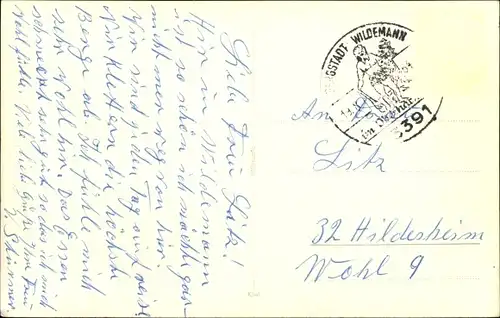 Liebe Frau Litz!
Hier in Wildemann
ist so schön ich möchte gar
nicht mehr weg von hier.
Wir sind jeden Tag auf Reise
Wir klettern die höchste
Berge ab. Ich fühle mich
sehr wohl hier. Das Essen
schmeckt sehr gut so das ich mich
wohl fühle. Viele liebe Grüße Ihre Frau
BERGSTADT WILDEMANN
im Oberharz
3391
An Frau
Litz
32 Hildesheim
Wohl 9